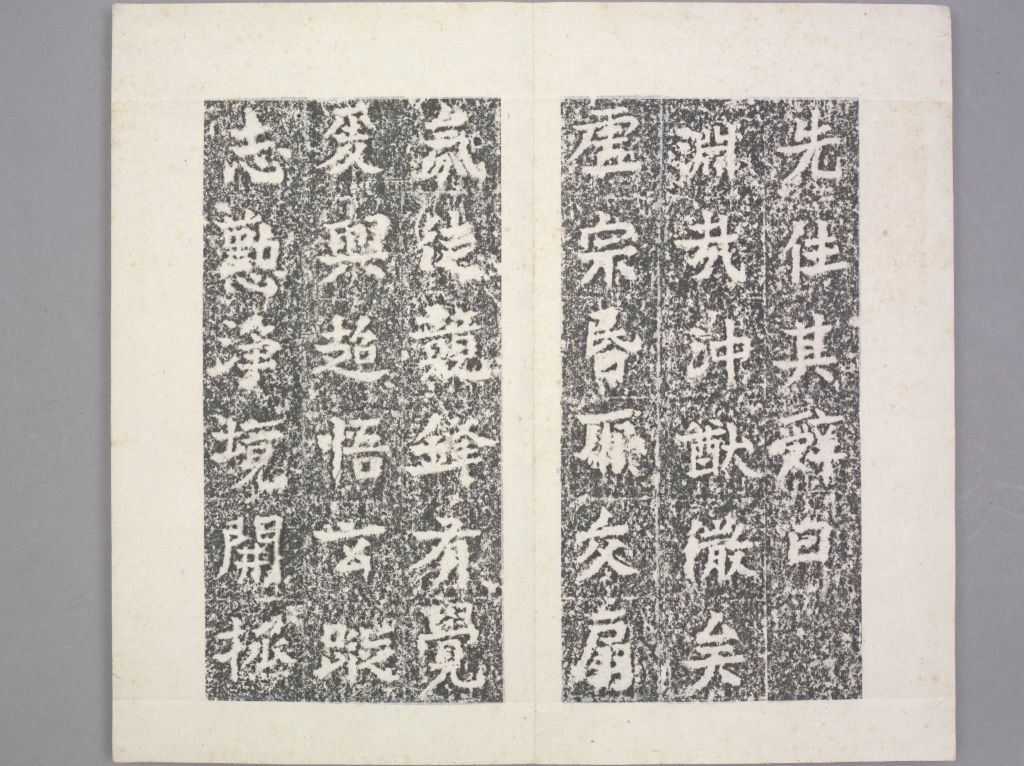 先佳其辭曰
淵哉沖猷微矣
虛宗昏交扇
徒競鋒有覺
爰興超悟玄蹤
志懃淨境開拯